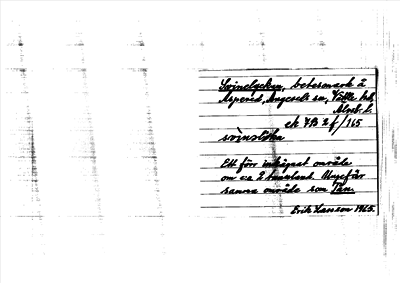 Svinelyckan, betesmark å
Asperöd, Angereds sn, Vättle hd,
Älvsb. l.
ek 7B 2f/165
svinslöka
Ett förr inhägnat område
om ca 2 tunnland. Ungefär
samma område som Tån.
Erik Larsson 1965.